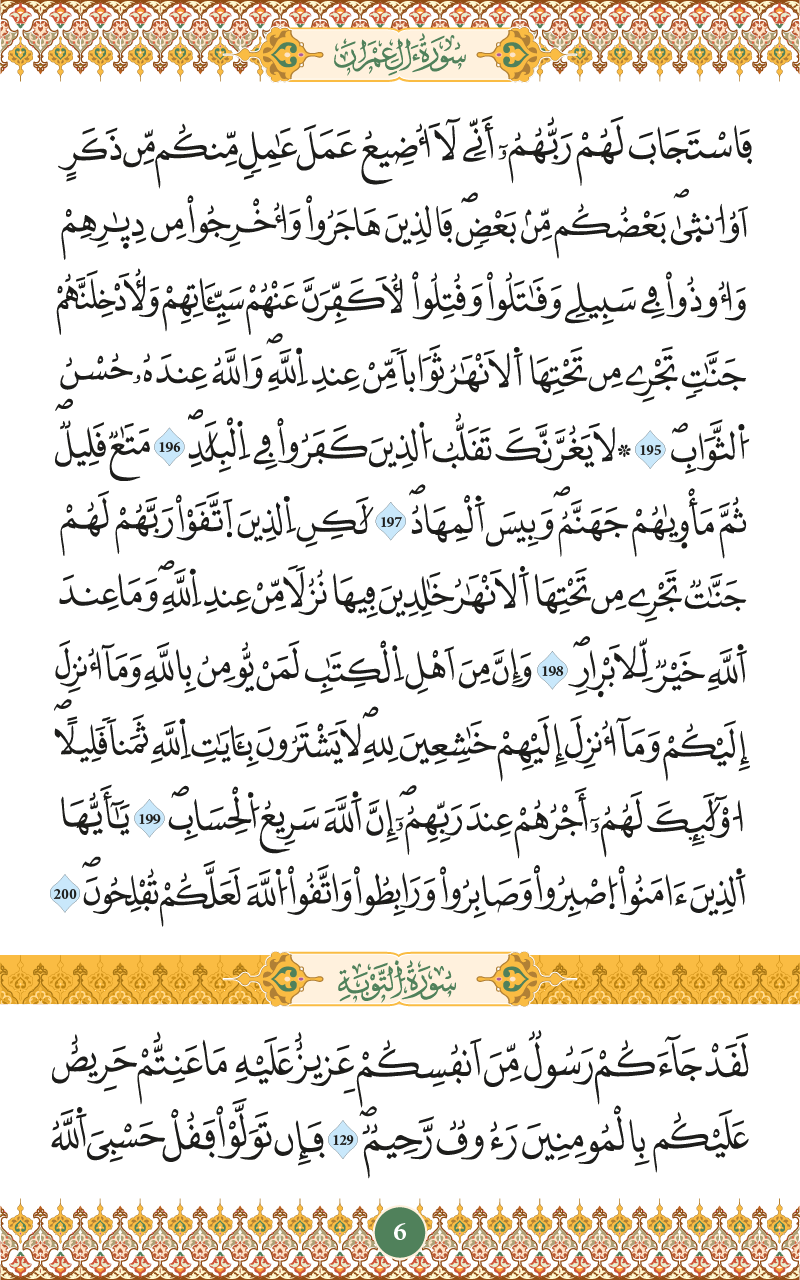 سُورَةُ ءَالِ عِمْرَانَ
فَاسْتَجَابَ لَهُمْ رَبُّهُمُۥٓ أَنِّے لَآ أُضِيعُ عَمَلَ عَٰمِلٖ مِّنكُم مِّن ذَكَرٍ
اَوُ ا۟نث۪ىٰۖ بَعْضُكُم مِّنۢ بَعْضٖۖ فَالذِينَ هَاجَرُواْ وَأُخْرِجُواْ مِن دِيٰ۪رِهِمْ
وَأُوذُواْ فِے سَبِيلِے وَقَٰتَلُواْ وَقُتِلُواْ لَأُكَفِّرَنَّ عَنْهُمْ سَيِّـَٔاتِهِمْ وَلَأُدْخِلَنَّهُمْ
جَنَّٰتٖ تَجْرِے مِن تَحْتِهَا اَ۬لَانْهَٰرُ ثَوَاباٗ مِّنْ عِندِ اِ۬للَّهِۖ وَاللَّهُ عِندَهُۥ حُسْنُ
اُ۬لثَّوَابِۖ 195 ۞ لَا يَغُرَّنَّكَ تَقَلُّبُ اُ۬لذِينَ كَفَرُواْ فِے اِ۬لْبِلَٰدِۖ 196 مَتَٰعٞ قَلِيلٞۖ
ثُمَّ مَأْو۪يٰهُمْ جَهَنَّمُۖ وَبِيسَ اَ۬لْمِهَادُۖ 197 لَٰكِنِ اِ۬لذِينَ اَ۪تَّقَوْاْ رَبَّهُمْ لَهُمْ
جَنَّٰتٞ تَجْرِے مِن تَحْتِهَا اَ۬لَانْهَٰرُ خَٰلِدِينَ فِيهَا نُزُلاٗ مِّنْ عِندِ اِ۬للَّهِۖ وَمَا عِندَ
اَ۬للَّهِ خَيْرٞ لِّلَابْر۪ارِۖ 198 وَإِنَّ مِنَ اَهْلِ اِ۬لْكِتَٰبِ لَمَنْ يُّومِنُ بِاللَّهِ وَمَآ أُنزِلَ
إِلَيْكُمْ وَمَآ أُنزِلَ إِلَيْهِمْ خَٰشِعِينَ لِلهِۖ لَا يَشْتَرُونَ بِـَٔايَٰتِ اِ۬للَّهِ ثَمَناٗ قَلِيلاًۖ
ا۟وْلَٰٓئِكَ لَهُمُۥٓ أَجْرُهُمْ عِندَ رَبِّهِمُۥٓۖ إِنَّ اَ۬للَّهَ سَرِيعُ اُ۬لْحِسَابِۖ 199 يَٰٓأَيُّهَا
اَ۬لذِينَ ءَامَنُواْ اُ۪صْبِرُواْ وَصَابِرُواْ وَرَابِطُواْ وَاتَّقُواْ اُ۬للَّهَ لَعَلَّكُمْ تُفْلِحُونَۖ 200
سُورَةُ التَّوْبَةِ
لَقَدْ جَآءَكُمْ رَسُولٞ مِّنَ اَنفُسِكُمْ عَزِيزٌ عَلَيْهِ مَا عَنِتُّمْ حَرِيصٌ
عَلَيْكُم بِالْمُومِنِينَ رَءُوفٞ رَّحِيمٞۖ 129 فَإِن تَوَلَّوْاْ فَقُلْ حَسْبِىَ اَ۬للَّهُ
6